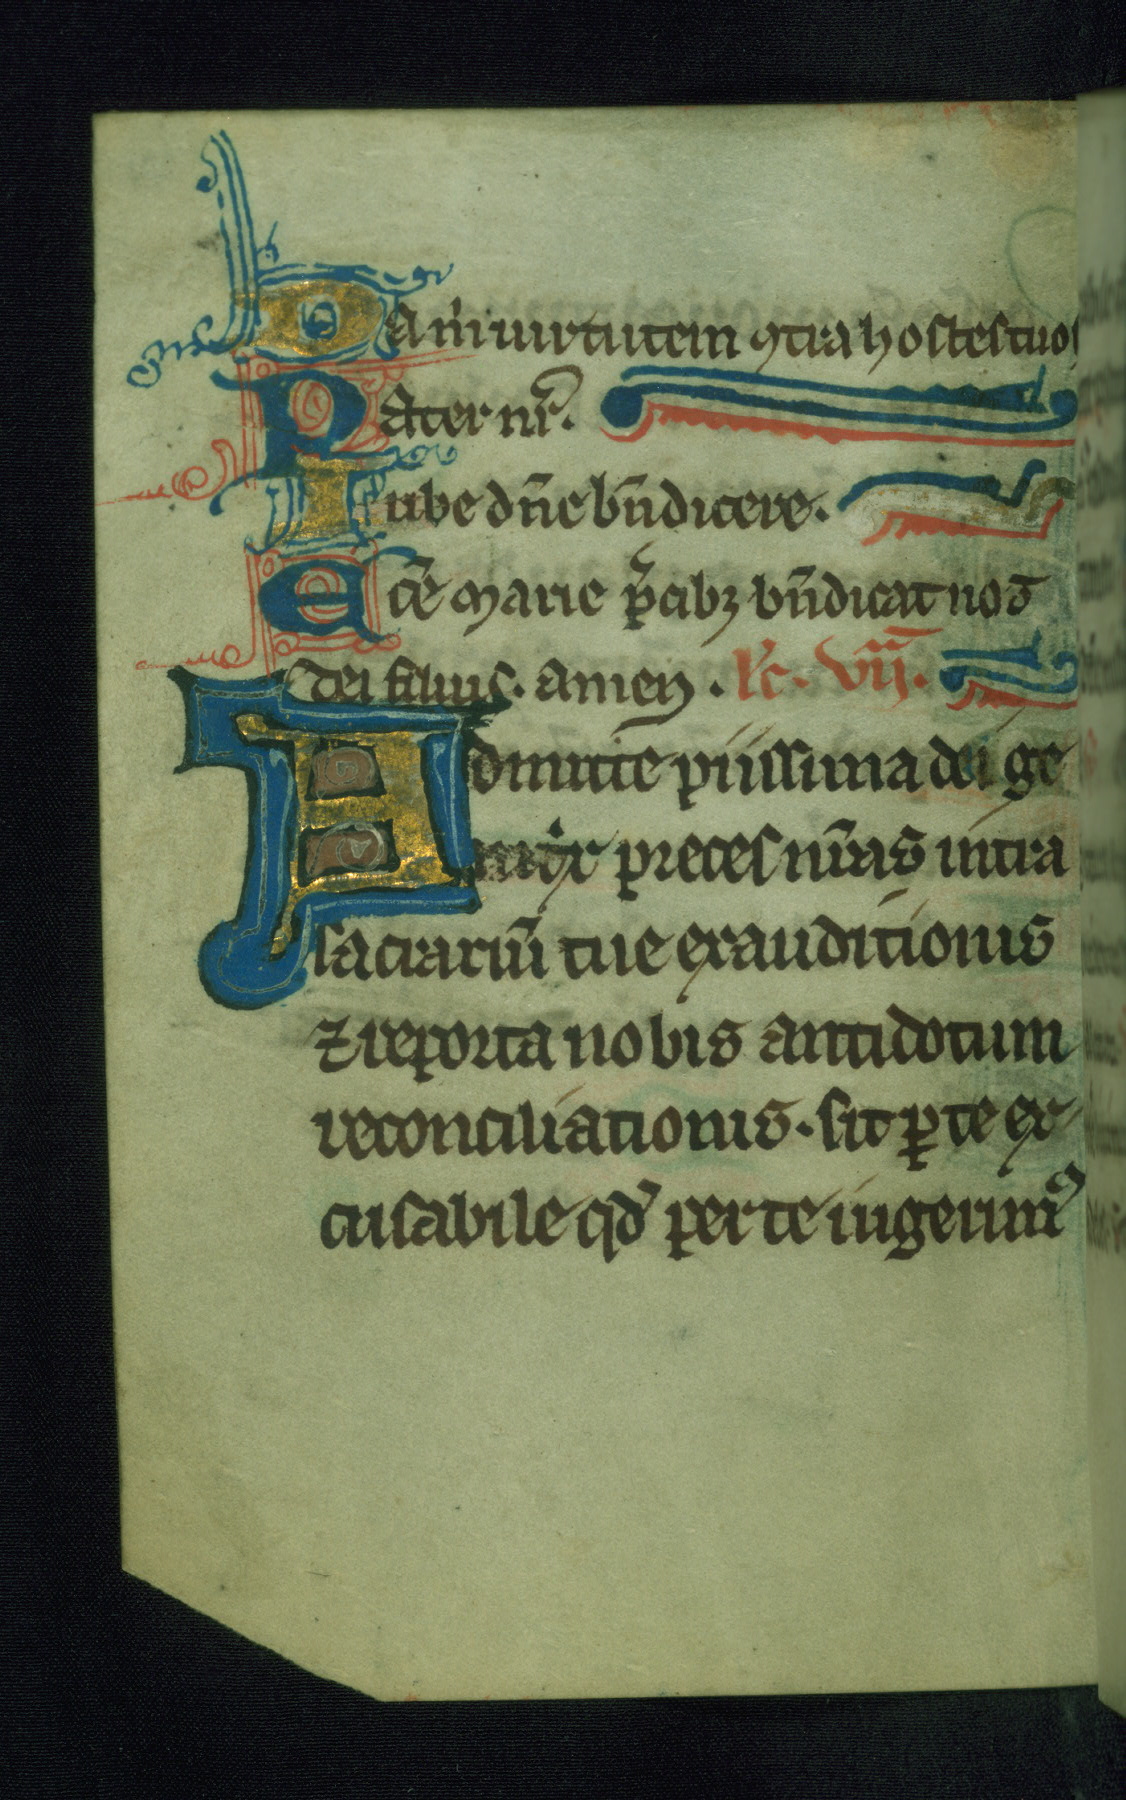 Da m̅ uirtutem ꝯtra hostes tuos
Pater nr̅.
Iube dn̅e bn̅dicere.
Sce̅ marie p̅cibꝫ bn̅dicat nos
dei filius. amen. lc̅. VII.
Admitte piissima dei ge
nitͥx preces nr̅as intra
sacrariu̅ tue exauditionis
⁊ reporta nobis antidotum
reconciliationis. sit ꝑ te ex
cusabile qd̅ per te ingerimꝰ